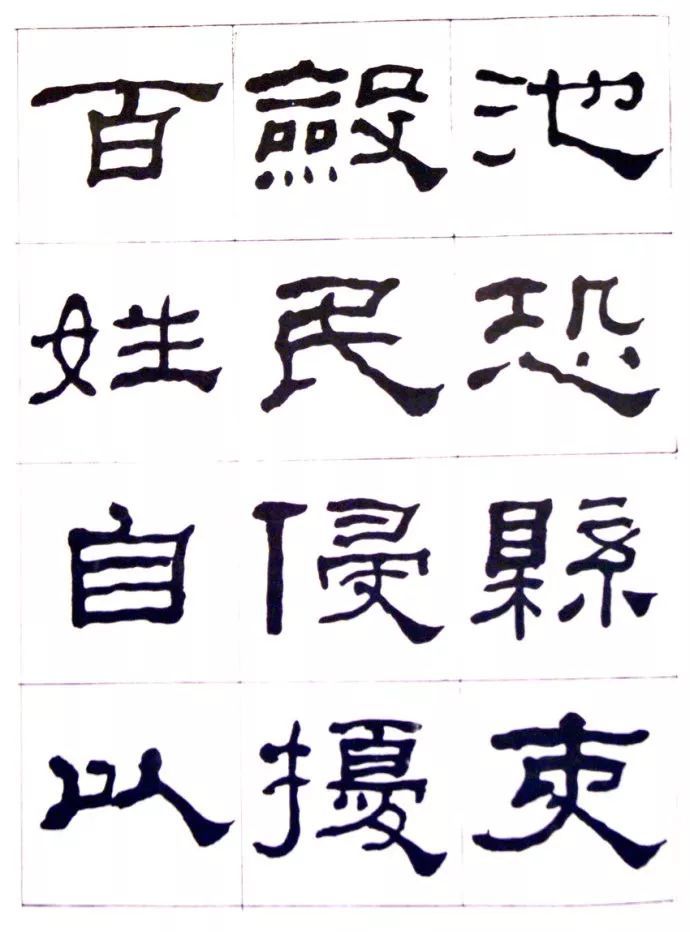 池恐縣吏
斂民侵擾
百姓自以